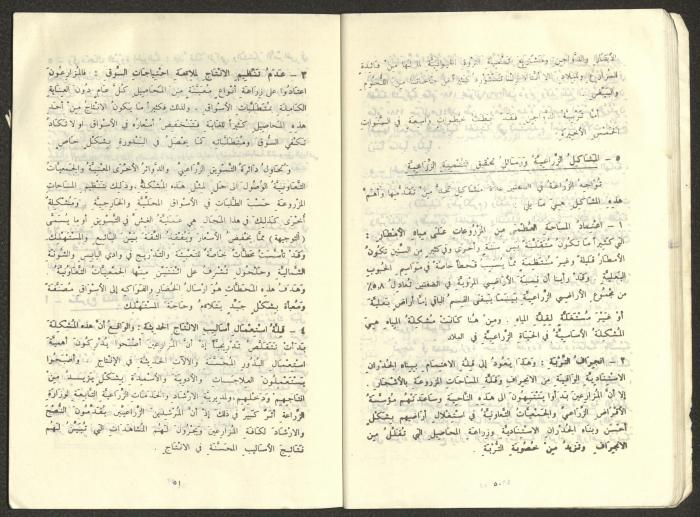 الأبقار والدواجن ومشاريع التنمية الثروة الحيوانية لما لها من فائدة
للمزارع وللبلاد
أما تربية الدواجن فقد خطت خطوات واسعة في السنوات
الخمس الأخيرة .
٥ – المشاكل الزراعية ووسائل تحقيق التنمية الزراعية
تواجه الزراعة في الضفتين عادة مشاكل تحد من تقدمها وأهم
هذه المشاكل هي ما يلي :
١ – اعتماد المساحة العظمى من المزروعات على مياه الأمطار :
التي كثيراً ما تكون متقلبة بين سنة وأخرى وفي كثير من السنين تكون
الأمطار قليلة وغير منتظمة مما يسبب قحطاً خاصة في مواسم الحبوب
البعلية . وقد رأينا أن نسبة الأراضي المروية في الضفتين تعادل ٥٫٨٪
من مجموع الأراضي الزراعية بينما يبقى القسم الباقي إما أراض بعلية
أو غير مستغلة لقلة المياه . ومن هنا كانت مشكلة المياه هي
المشكلة الأساسية في الحياة الزراعية في البلاد
٢ – انجراف التربة : وهذا يعود إلى قلة الاهتمام ببناء الجدران
الاستنادية الواقية من الانجراف وقلة المساحات المزروعة بالأشجار .
إلا أن المزارعين بدأوا يتنبهون إلى هذه الناحية وساعدتهم مؤسسة
الاقراض الزراعي والجمعيات التعاونية في استغلال أراضيهم بشكل
أحسن وبناء الجدران الاستنادية وزراعة المحاصيل التي تقلل من
الانجراف وتزيد من خصوبة التربة .
٥٠
٣ – عدم تنظيم الانتاج لملاءمة احتياجات السوق : فالمزارعون
اعتادوا على زراعة أنواع معينة من المحاصيل كل عام دون العناية
الكاملة بمتطلبات الأسواق . ولذلك فكثيراً ما يكون الانتاج من أحد
هذه المحاصيل كثيراً للغاية فتنخفض أسعاره في الأسواق أو لا تكاد
تكفي السوق ومتطلباته كما يحصل في البندورة بشكل خاص .
وتحاول دائرة التسويق الزراعي والدوائر الأخرى المعنية والجمعيات
التعاونية الوصول إلى حل لمثل هذه المشكلة . وذلك بتنظيم المساحات
المزروعة حسب الطلبات في الأسواق المحلية والخارجية . ومشكلة
أخرى كذلك في هذا المجال هي عملية الغش في التسويق أو ما يسمى
(التوجيه) مما يخفض الأسعار ويفقد الثقة بين البائع والمستهلك.
وقد تأسست محطات خاصة للتعبئة والتدريج في وادي اليابس والشونة
الشمالية وحلحول تشرف على اثنتين منها الجمعيات التعاونية .
وهدف هذه المحطات هو ارسال الخضار والفواكه إلى الأسواق مصنفة
ومعبأة بشكل جيد يتلاءم وحاجة المستهلك .
٤ – قلة استعمال أساليب الانتاج الحديثة : والواقع أن هذه المشكلة
بدأت تتقلص تدريجياً إذ أن المزارعين أصبحوا يدركون أهمية
استعمال البذور المحسنة والآلات الحديثة في الإنتاج . وأصبحوا
يستعملون العلاجات والأدوية والأسمدة بشكل يزيد من
انتاجهم ودخلهم . ولمديرية الارشاد والخدمات الزراعية التابعة لوزارة
الزراعة أثر كبير في ذلك إذ أن المرشدين الزراعيين يقدمون النصح
والارشاد لكافة المزارعين ويجرون لهم المشاهدات التي تبين لهم
نتائج الأساليب المحسنة في الانتاج .
٥١